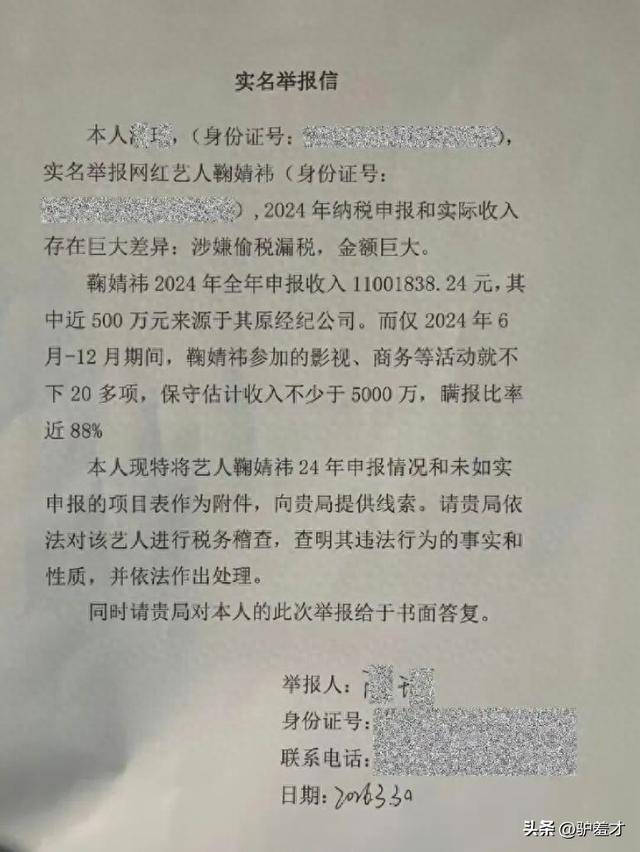 实名举报信
本人,（身份证号：),
实名举报网红艺人鞠婧祎（身份证号：
）,2024年纳税申报和实际收入
存在巨大差异：涉嫌偷税漏税，金额巨大。
鞠婧祎2024年全年申报收入11001838.24元，其
中近500万元来源于其原经纪公司。而仅2024年6
月-12月期间，鞠婧祎参加的影视、商务等活动就不
下20多项，保守估计收入不少于5000万，瞒报比率
近88%
本人现特将艺人鞠婧祎24年申报情况和未如实
申报的项目表作为附件，向贵局提供线索。请贵局依
法对该艺人进行税务稽查，查明其违法行为的事实和
性质，并依法作出处理。
同时请贵局对本人的此次举报给于书面答复。
举报人：
身份证号：
联系电话：
日期：2026.3.30
头条 @驴羞才